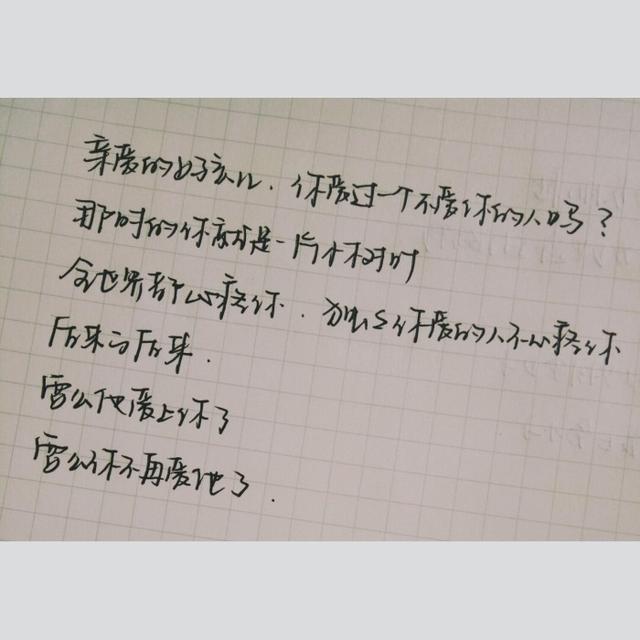 亲爱的好孩儿、你爱过一个不爱你的人吗?
那时的你就是一片小树叶
全世界都心疼你、你爱的人不心疼你
后来的后来、
要么他爱上你了
要么你不再爱他了、